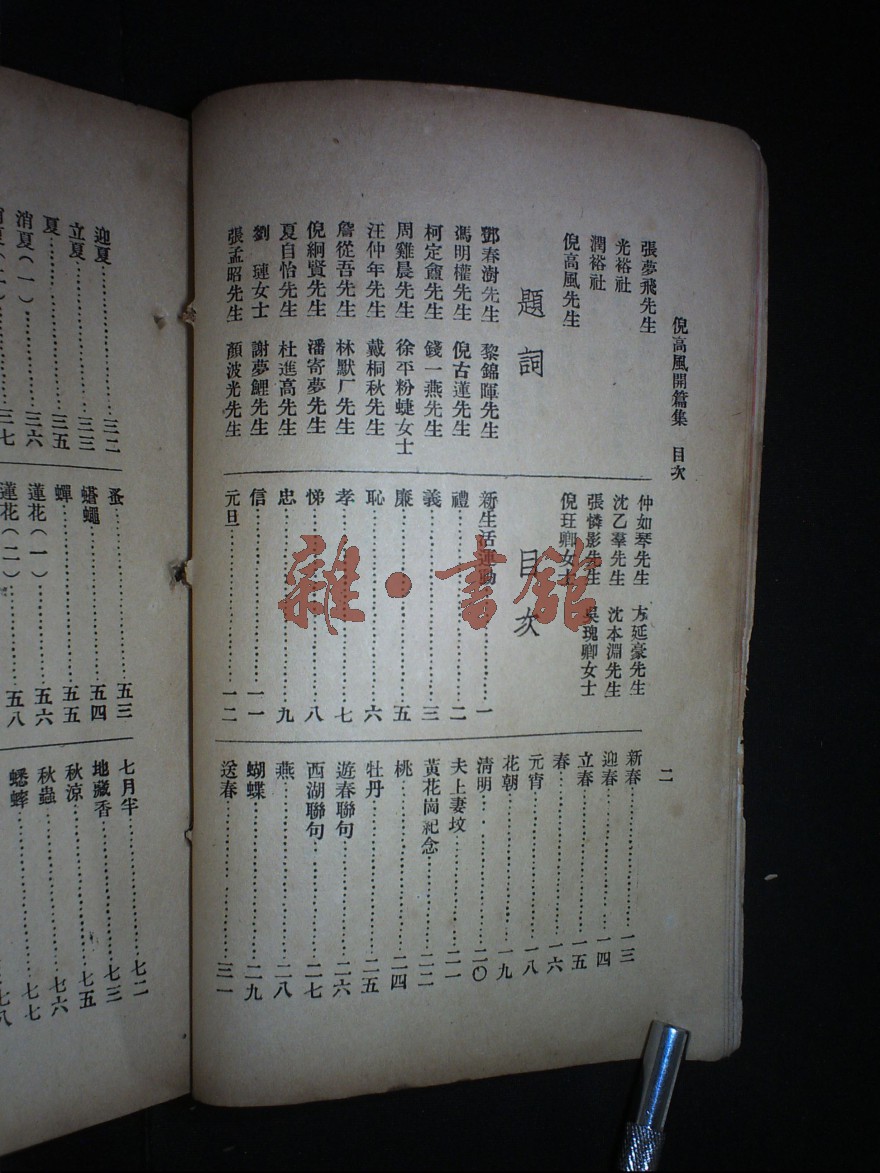 倪高風開篇集 目次
二
張夢飛先生
光裕社
潤裕社
倪高風先生
題詞
鄧春澍先生 黎錦暉先生
馮明權先生 倪古蓮先生
柯定盦先生 錢一燕先生
周雞晨先生 徐平粉蜨女士
汪仲年先生 戴桐秋先生
詹從吾先生 林默厂先生
倪絅賢先生 潘寄夢先生
夏自怡先生 杜進高先生
劉璉女士 謝夢鯉先生
張孟昭先生 顏波光先生
仲如琴先生 方延豪先生
沈乙羣先生 沈本淵先生
張憐影先生 吳瑰卿女士
倪玨卿女士
目次
新生活運動……一
禮……二
義……三
廉……五
恥……六
孝……七
悌……八
忠……九
信……一一
元旦……一二
新春……一三
迎春……一四
立春……一五
春……一六
元宵……一八
花朝……一九
清明……二〇
夫上妻墳……二一
黃花崗紀念……二二
桃……二四
牡丹……二五
遊春聯句……二六
西湖聯句……二七
燕……二八
蝴蝶……二九
送春……三一
迎夏……三二
立夏……三三
夏……三五
消夏(一)……三六
消夏(二)……三七
蚤……五三
蠅……五四
蟬……五五
蓮花(一)……五六
蓮花(二)……五八
七月半……七二
地藏香……七三
秋涼……七五
秋蟲……七六
蟋蟀……七七
七八
雜·書館